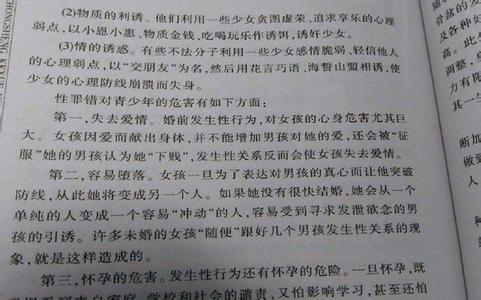 (2)物质的利诱。他们利用一些少女贪图虚荣、追求享乐的心理
弱点,以小恩小惠,物质金钱、吃喝玩乐作诱饵,诱奸少女。
(3)情的诱惑。有些不法分子利用一些少女感情脆弱、轻信他人
的心理弱点,以“交朋友”为名,然后用花言巧语、海誓山盟相诱,使
少女的心理防线崩溃而失身。
性罪错对青少年的危害有如下方面:
第一,失去爱情。婚前发生性行为,对女孩的心身危害尤其巨
大。女孩因爱而献出身体,并不能增加男孩对她的爱,还会被“征
服”她的男孩认为她“下贱”,发生性关系反而会使女孩失去爱情。
第二,容易堕落。女孩一旦为了表达对男孩的真心而让他突破
防线,从此她将变成另一个人。如果她没有很快结婚,她会从一个
单纯的人变成一个容易“冲动”的人,容易受到寻求发泄欲念的男
孩的引诱。许多未婚的女孩“随便”跟好几个男孩发生性关系的现
象,就是这样造成的。
第三,怀孕的危害。发生性行为还有怀孕的危险。一旦怀孕,既
来自家庭、学校和社会的谴责,又怕影响学习,甚至还怕